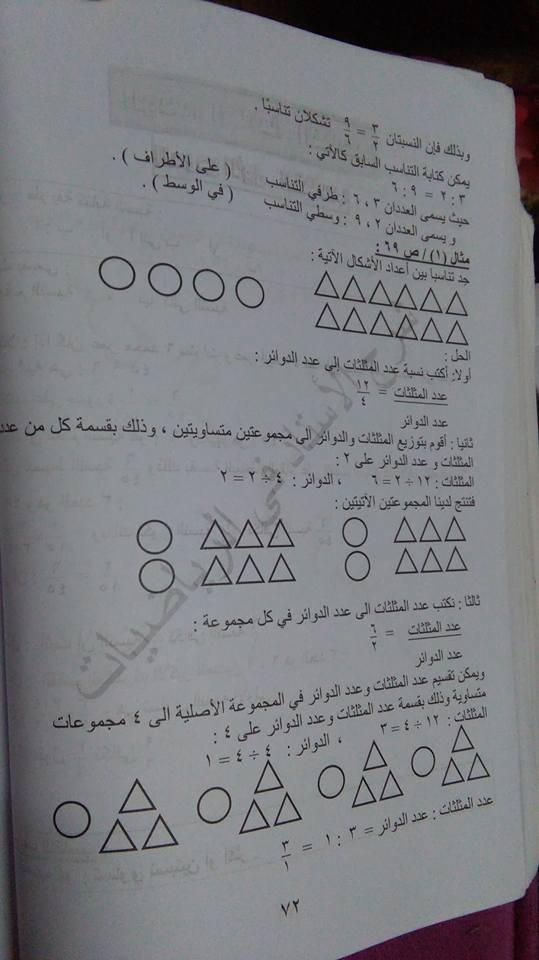 وبذلك فإن النسبتان ٣/٢ = ٩/٦ تشكلان تناسبًا .
يمكن كتابة التناسب السابق كالآتي :
٣ : ٢ = ٩ : ٦
حيث يسمى العددان ٣ ، ٦ : طرفي التناسب ( على الأطراف ) .
و يسمى العددان ٢ ، ٩ : وسطي التناسب ( في الوسط ) .
مثال (١) / ص ٦٩ :
جد تناسبا بين أعداد الأشكال الآتية :
الحل :
أولا: أكتب نسبة عدد المثلثات إلى عدد الدوائر :
عدد المثلثات = ١٢/٤
عدد الدوائر
ثانيا : أقوم بتوزيع المثلثات والدوائر الى مجموعتين متساويتين ، وذلك بقسمة كل من عدد
المثلثات و عدد الدوائر على ٢ :
المثلثات : ١٢ ÷ ٢ = ٦ ، الدوائر : ٤ ÷ ٢ = ٢
فتنتج لدينا المجموعتين الآتيتين :
ثالثا : نكتب عدد المثلثات الى عدد الدوائر في كل مجموعة :
عدد المثلثات = ٦/٢
عدد الدوائر
ويمكن تقسيم عدد المثلثات وعدد الدوائر في المجموعة الأصلية الى ٤ مجموعات
متساوية وذلك بقسمة عدد المثلثات وعدد الدوائر على ٤ :
المثلثات : ١٢ ÷ ٤ = ٣ ، الدوائر : ٤ ÷ ٤ = ١
عدد المثلثات : عدد الدوائر = ٣ : ١ = ٣/١
٧٢